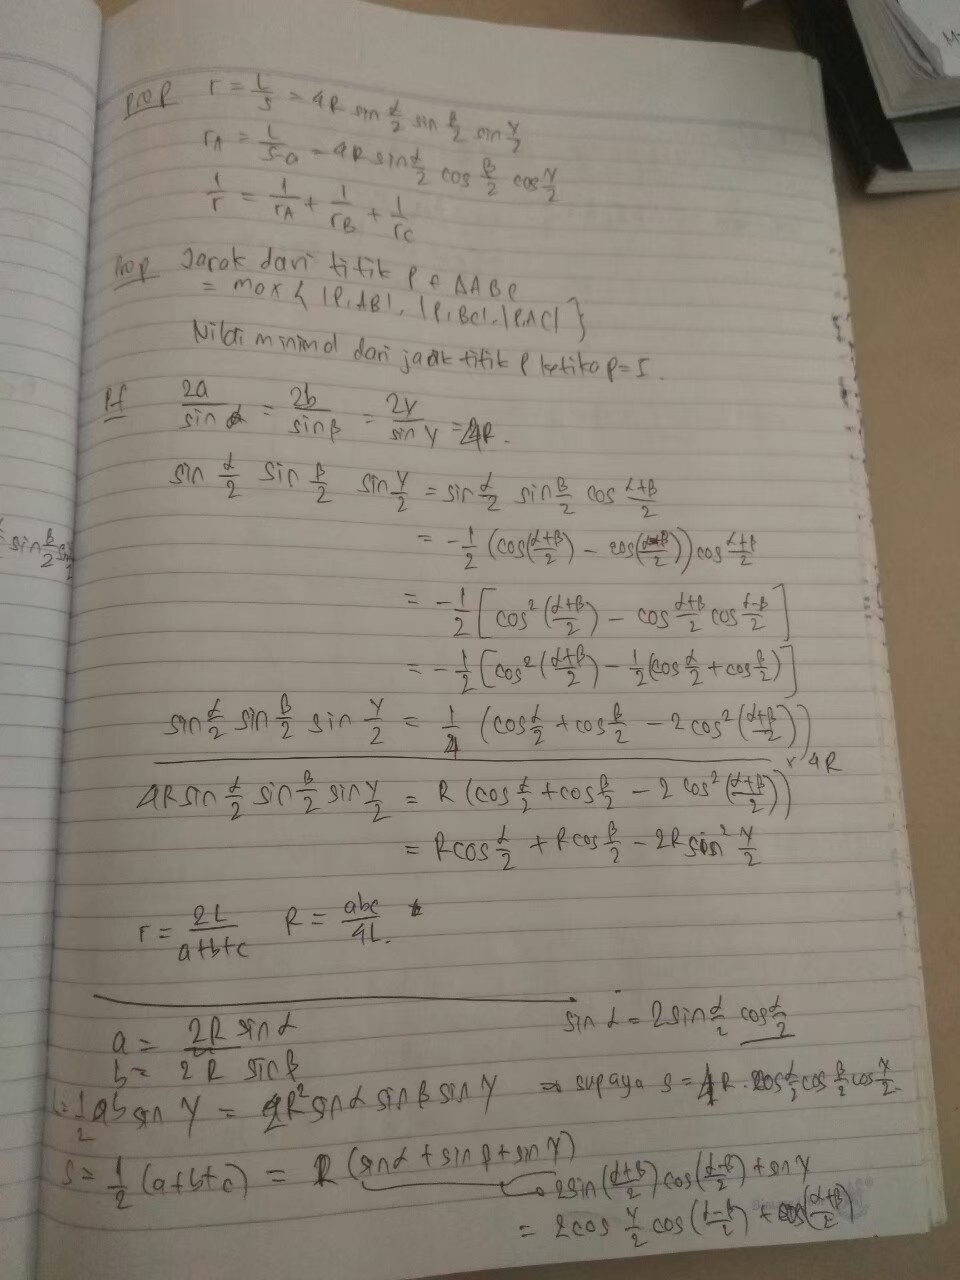 prop r = L/s = 4R sin α/2 sin β/2 sin γ/2
rA = L/s-a = 4R sin α/2 cos β/2 cos γ/2
1/r = 1/rA + 1/rB + 1/rC
Prop Jarak dari titik P ke ΔABC
= max { |P,AB|, |P,BC|, |P,AC| }
Nilai minimal dari jarak titik P ketika P=I.
Pf 2a/sin α = 2b/sin β = 2γ/sin γ = 4R.
sin α/2 sin β/2 sin γ/2 = sin α/2 sin β/2 cos α+β/2
= -1/2 (cos(α+β/2) - cos(α-β/2)) cos α+β/2
= -1/2 [cos²(α+β/2) - cos α+β/2 cos α-β/2]
= -1/2 [cos²(α+β/2) - 1/2 (cos α/2 + cos β/2)]
sin α/2 sin β/2 sin γ/2 = 1/4 (cos α/2 + cos β/2 - 2 cos²(α+β/2))
× 4R
4R sin α/2 sin β/2 sin γ/2 = R (cos α/2 + cos β/2 - 2 cos²(α+β/2))
= R cos α/2 + R cos β/2 - 2R sin² γ/2
r = 2L/a+b+c R = abc/4L.
a = 2R sin α sin α = 2 sin α/2 cos α/2
b = 2R sin β
L = 1/2 ab sin γ = 2R² sin α sin β sin γ ⇒ supaya s = 4R cos α/2 cos β/2 cos γ/2
s = 1/2 (a+b+c) = R (sin α + sin β + sin γ)
2 sin(α+β/2) cos(α-β/2) + sin γ
= 2 cos γ/2 cos(α-β/2) + cos(α+β/2)
sin β/2